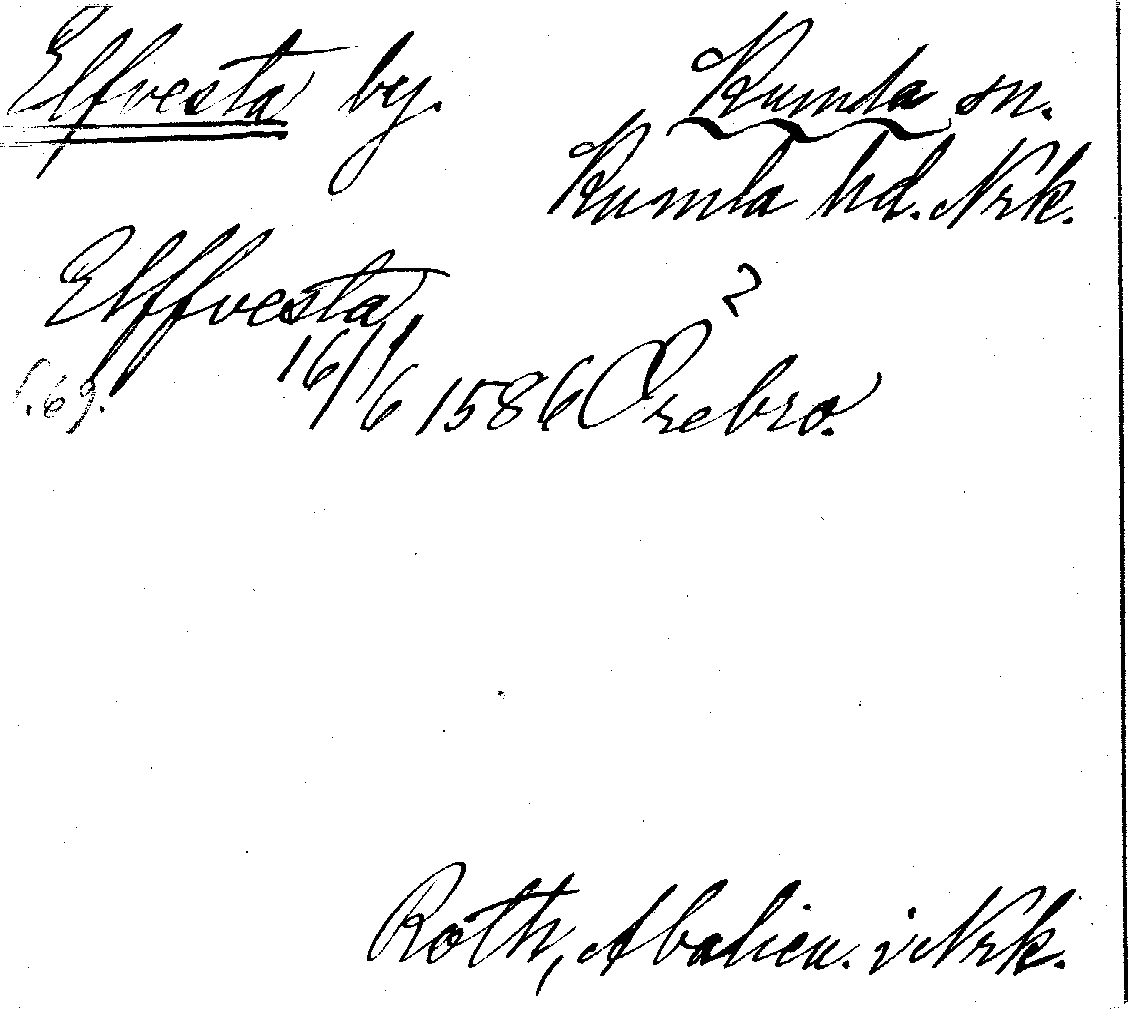 Elfvesta by. Kumla sn.
Kumla hd. Nrk.
Elffvesta 2
s. 69. 16/6 1586 Örebro.
Roth, Abalien. i Nrk.